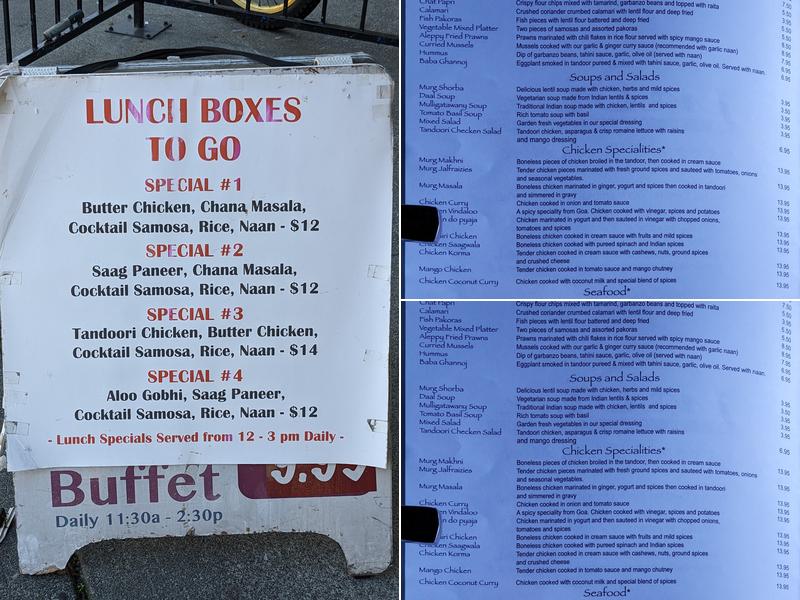 LUNCH BOXES
TO GO
SPECIAL #1
Butter Chicken, Chana Masala,
Cocktail Samosa, Rice, Naan - $12
SPECIAL #2
Saag Paneer, Chana Masala,
Cocktail Samosa, Rice, Naan - $12
SPECIAL #3
Tandoori Chicken, Butter Chicken,
Cocktail Samosa, Rice, Naan - $14
SPECIAL #4
Aloo Gobhi, Saag Paneer,
Cocktail Samosa, Rice, Naan - $12
- Lunch Specials Served from 12 - 3 pm Daily -
Buffet 9.99
Daily 11:30a - 2:30p
Chat Papri Crispy flour chips mixed with tamarind, garbanzo beans and topped with raita 7.50
Calamari Crushed coriander crumbed calamari with lentil flour and deep fried 5.50
Fish Pakoras Fish pieces with lentil flour battered and deep fried 3.95
Vegetable Mixed Platter Two pieces of samosas and assorted pakoras 5.50
Aleppy Fried Prawns Prawns marinated with chili flakes in rice flour served with spicy mango sauce 6.50
Curried Mussels Mussels cooked with our garlic & ginger curry sauce (recommended with garlic naan) 8.50
Hummus Dip of garbanzo beans, tahini sauce, garlic, olive oil (served with naan) 8.95
Baba Ghannoj Eggplant smoked in tandoor pureed & mixed with tahini sauce, garlic, olive oil. Served with naan. 7.95
6.95
6.95
Soups and Salads
Murg Shorba Delicious lentil soup made with chicken, herbs and mild spices
Daal Soup Vegetarian soup made from Indian lentils & spices 3.95
Mulligatawany Soup Traditional Indian soup made with chicken, lentils and spices 3.50
Tomato Basil Soup Rich tomato soup with basil 3.95
Mixed Salad Garden fresh vegetables in our special dressing 3.95
Tandoori Checken Salad Tandoori chicken, asparagus & crisp romaine lettuce with raisins 3.95
and mango dressing
6.95
Chicken Specialities*
Murg Makhni Boneless pieces of chicken broiled in the tandoor, then cooked in cream sauce
Murg Jalfraizies Tender chicken pieces marinated with fresh ground spices and sauteed with tomatoes, onions 13.95
and seasonal vegetables. 13.95
Murg Masala Boneless chicken marinated in ginger, yogurt and spices then cooked in tandoori
and simmered in gravy 13.95
Chicken Curry Chicken cooked in onion and tomato sauce
Vindaloo A spicy speciality from Goa. Chicken cooked with vinegar, spices and potatoes 13.95
n do pyaja Chicken marinated in yogurt and then sauteed in vinegar with chopped onions, 13.95
tomatoes and spices 13.95
ri Chicken Boneless chicken cooked in cream sauce with fruits and mild spices
Chicken Saagwala Boneless chicken cooked with pureed spinach and Indian spices 13.95
Chicken Korma Tender chicken cooked in cream sauce with cashews, nuts, ground spices 13.95
and crushed cheese 13.95
Mango Chicken Tender chicken cooked in tomato sauce and mango chutney 13.95
Chicken Coconut Curry Chicken cooked with coconut milk and special blend of spices 13.95
Seafood*
Chat Papri Crispy flour chips mixed with tamarind, garbanzo beans and topped with raita 7.50
Calamari Crushed coriander crumbed calamari with lentil flour and deep fried 5.50
Fish Pakoras Fish pieces with lentil flour battered and deep fried 3.95
Vegetable Mixed Platter Two pieces of samosas and assorted pakoras 5.50
Aleppy Fried Prawns Prawns marinated with chili flakes in rice flour served with spicy mango sauce 6.50
Curried Mussels Mussels cooked with our garlic & ginger curry sauce (recommended with garlic naan) 8.50
Hummus Dip of garbanzo beans, tahini sauce, garlic, olive oil (served with naan) 8.95
Baba Ghannoj Eggplant smoked in tandoor pureed & mixed with tahini sauce, garlic, olive oil. Served with naan. 7.95
6.95
6.95
Soups and Salads
Murg Shorba Delicious lentil soup made with chicken, herbs and mild spices
Daal Soup Vegetarian soup made from Indian lentils & spices 3.95
Mulligatawany Soup Traditional Indian soup made with chicken, lentils and spices 3.50
Tomato Basil Soup Rich tomato soup with basil 3.95
Mixed Salad Garden fresh vegetables in our special dressing 3.95
Tandoori Checken Salad Tandoori chicken, asparagus & crisp romaine lettuce with raisins 3.95
and mango dressing
6.95
Chicken Specialities*
Murg Makhni Boneless pieces of chicken broiled in the tandoor, then cooked in cream sauce
Murg Jalfraizies Tender chicken pieces marinated with fresh ground spices and sauteed with tomatoes, onions 13.95
and seasonal vegetables. 13.95
Murg Masala Boneless chicken marinated in ginger, yogurt and spices then cooked in tandoori
and simmered in gravy 13.95
Chicken Curry Chicken cooked in onion and tomato sauce
Vindaloo A spicy speciality from Goa. Chicken cooked with vinegar, spices and potatoes 13.95
n do pyaja Chicken marinated in yogurt and then sauteed in vinegar with chopped onions, 13.95
tomatoes and spices 13.95
ri Chicken Boneless chicken cooked in cream sauce with fruits and mild spices
Chicken Saagwala Boneless chicken cooked with pureed spinach and Indian spices 13.95
Chicken Korma Tender chicken cooked in cream sauce with cashews, nuts, ground spices 13.95
and crushed cheese 13.95
Mango Chicken Tender chicken cooked in tomato sauce and mango chutney 13.95
Chicken Coconut Curry Chicken cooked with coconut milk and special blend of spices 13.95
Seafood*